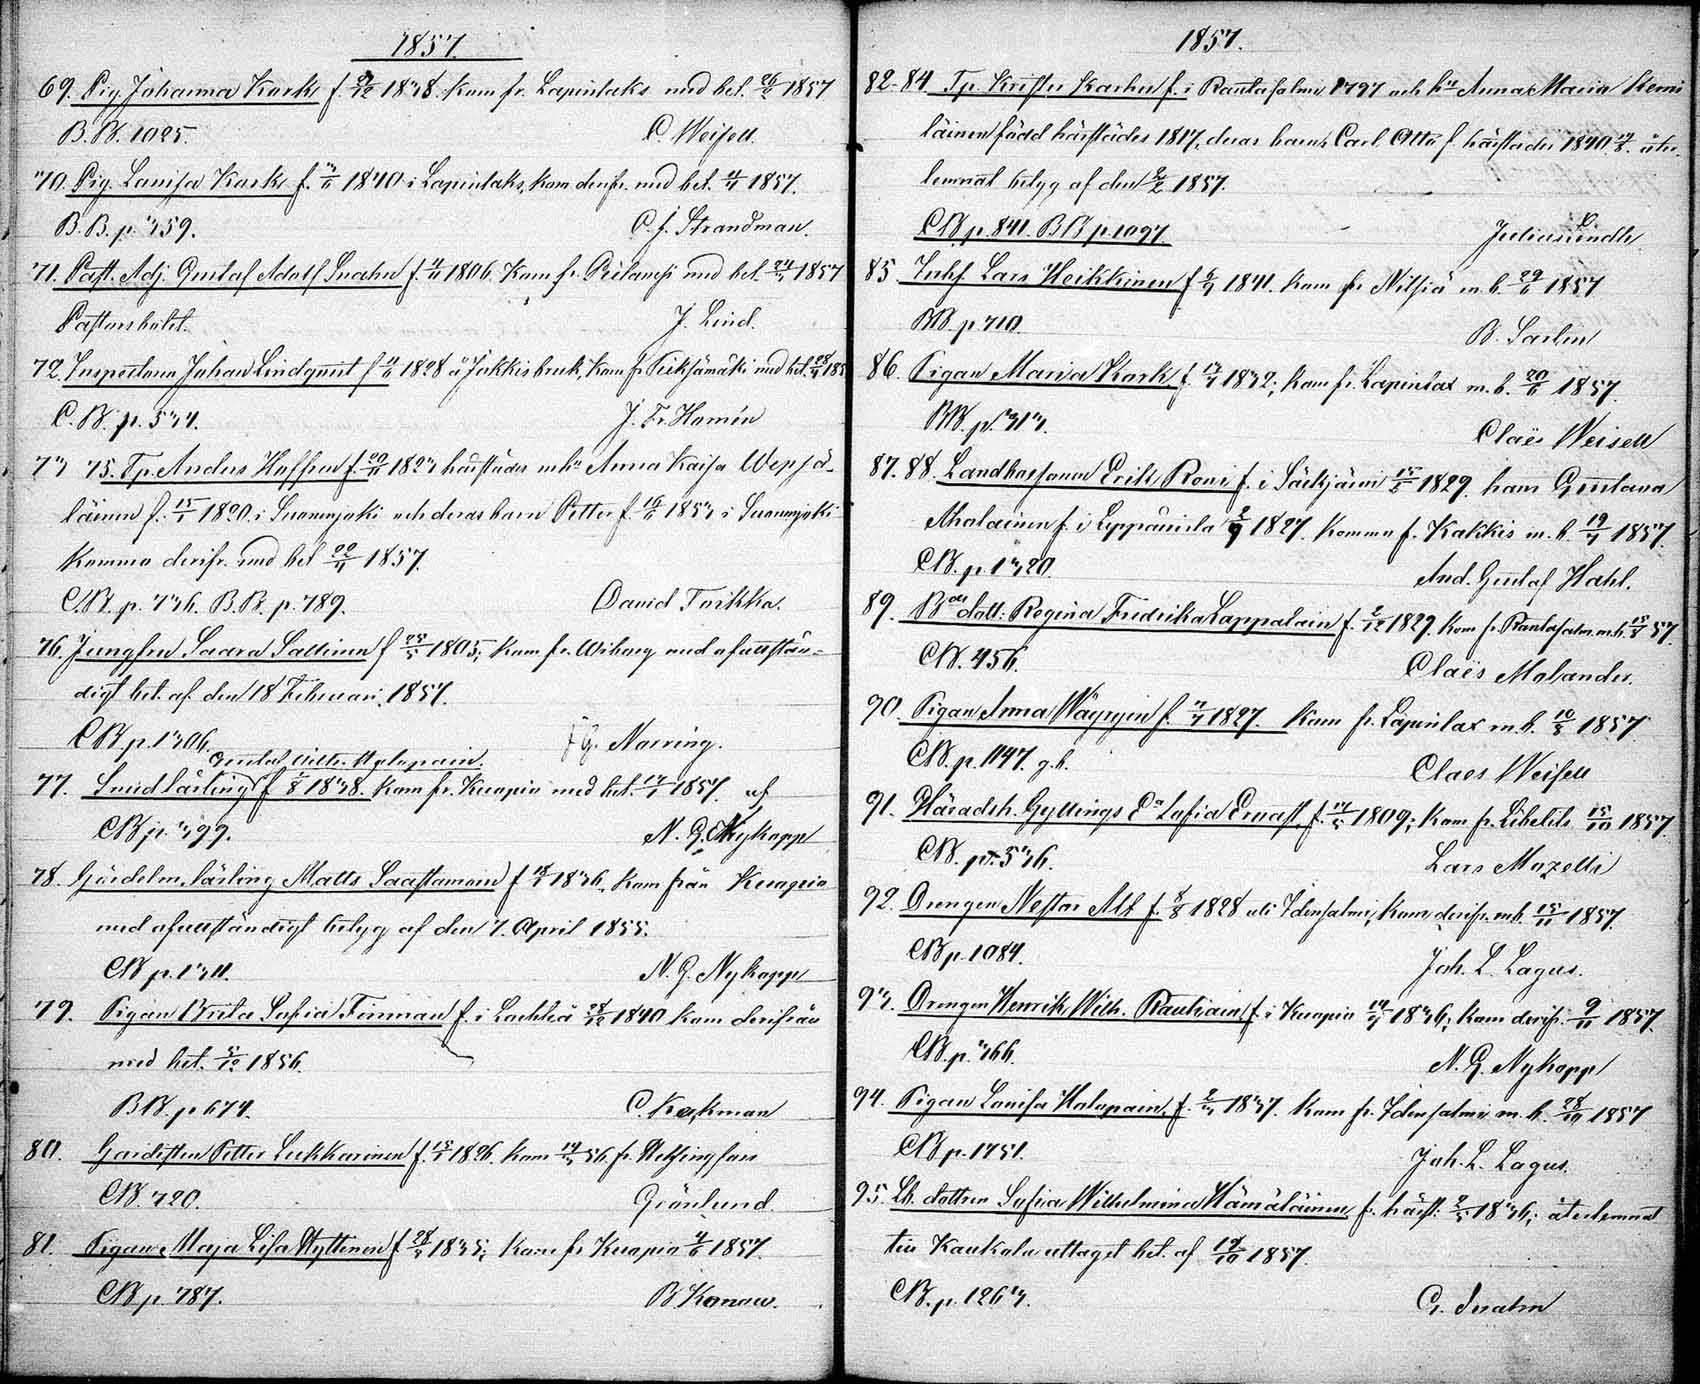 1857.
69. Pig. Johanna Kork f. 2/12 1838. Kom fr. Lapinlaks med bet. 26/2 1857
B.B. 1025. C. Weisell.
70. Pig. Lovisa Kork f. 1840 i Lapinlaks, kom derifr. med bet. 1857.
B.B. p. 359. C. J. Strandman.
71. Past. Adj. Gustaf Adolf Snahn f. 1806. Kom fr. med bet. 24/3 1857
Pastorsbolet. J. Lind.
72. Inspectoren Johan Lindqvist f. 1828 å Jokkis bruk, Kom fr. Pieksämäki med bet. 28/4 185
C.B. p. 534. J. Fr. Homén
73 75. Tp. Anders Hoffren f. 20/11 1823 härstädes m hu Anna Kaisa Wepsä-
läinen f. 15/1 1820 i Suonenjoki och deras barn Petter f. 16/6 1853 i Suonenjoki
Komma derifr. med bet 22/4 1857.
CB. p. 736. B.B. p. 789. David Toikka.
76. Jungfru Saara Sallinen f 25/5 1805; Kom fr. Wiborg med ofullstän-
digt bet. af den 18 Februari 1857.
CB p. 1306. J G. Norring.
Gustaf Wilh.
77. Smedlärling f 1/8 1838. Kom fr. Kuopio med bet. 1857. af
CB p. 399. N. G. Nykopp
78. Gördelm. lärling Matts Saastamoin f 1836, Kom från Kuopio
med ofullständigt betyg af den 7. April 1855.
CB p. 1311. N. G. Nykopp
79. Pigan Brita Sofia Finman f. i Lochteå 28/12 1840 kom derifrån
med bet. 5/10 1856.
BB. p 674. C. Keckman
80. Gardisten Petter Lukkarinen f. 15/1 1826. Kom 14/3 56 fr. Helsingfors
CB. 720. Grönlund.
81. Pigan Maja Lisa Hyttinen f 28/5 1835; Kom fr Kuopio 4/6 1857.
CB p. 787. B. Konow.
1857.
82-84 Tp. Krister Karhu f. i Rantasalmi 1797 och hu Anna Maria Hemi
läinen född härstädes 1817, deras barn, Carl Otto f. härstädes 1840 åter-
lemnat betyg af den 2/2 1857.
CB p. 841. BB p. 1097. Julius Lindh
85. Inhs. Lars Heikkinen f 6/7 1841. Kom fr Nilsiä m. b. 29/6 1857
BB p 710. B. Sarlin
86. Pigan Maria Kork f. 1832; Kom fr. Lapinlax m. b. 20/6 1857.
BB. p. 313. Claës Weisell
87. 88. Landbosonen Erik Roni f. i Säkjärvi 15/5 1829. hans Gustava
Aholainen f. i Leppävirta 1827. Komma f. Kakkis m. b. 19/7 1857.
CB. p. 1320. And. Gustaf Hahl.
89. Bdes dott: Regina Fredrika Lappalain f. 2/12 1829. Kom fr Rantasalm. m b. 15/8 57.
CB. 456. Claës Molander.
90. Pigan Anna Wäyryin f. 1827. Kom fr. Lapinlax m. b. 10/8 1857
CB. p. 1147. g. b. Claes Weisell
91. Häradsh. Gyllings Ea Sofia Ernast f. 14/5 1809; Kom fr. Libelits 15/10 1857
CB. p. 536. Lars Mozelli
92. Drengen Nestor Alf f. 8/8 1828 uti Idensalmi, Kom derifr. m b. 15/11 1857.
CB p. 1084. Joh. L. Lagus.
93. Drengen Henrik Wilh. Rautiain f. i Kuopio 14/7 1836; Kom derifr. 9/11 1857.
CB. p. 366. N. G. Nykopp
94. Pigan Lovisa Holopain, f. 2/3 1837. Kom fr. Idensalmi m. b. 28/10 1857
CB p. 1751. Joh. L. Lagus.
95. Lb. dottren Sofia Wilhelmina Hämäläinen f. härst: 2/5 1836; återlemnat
till Kaukola uttaget bet. af 12/10 1857.
CB. p. 1263. G. Snahn